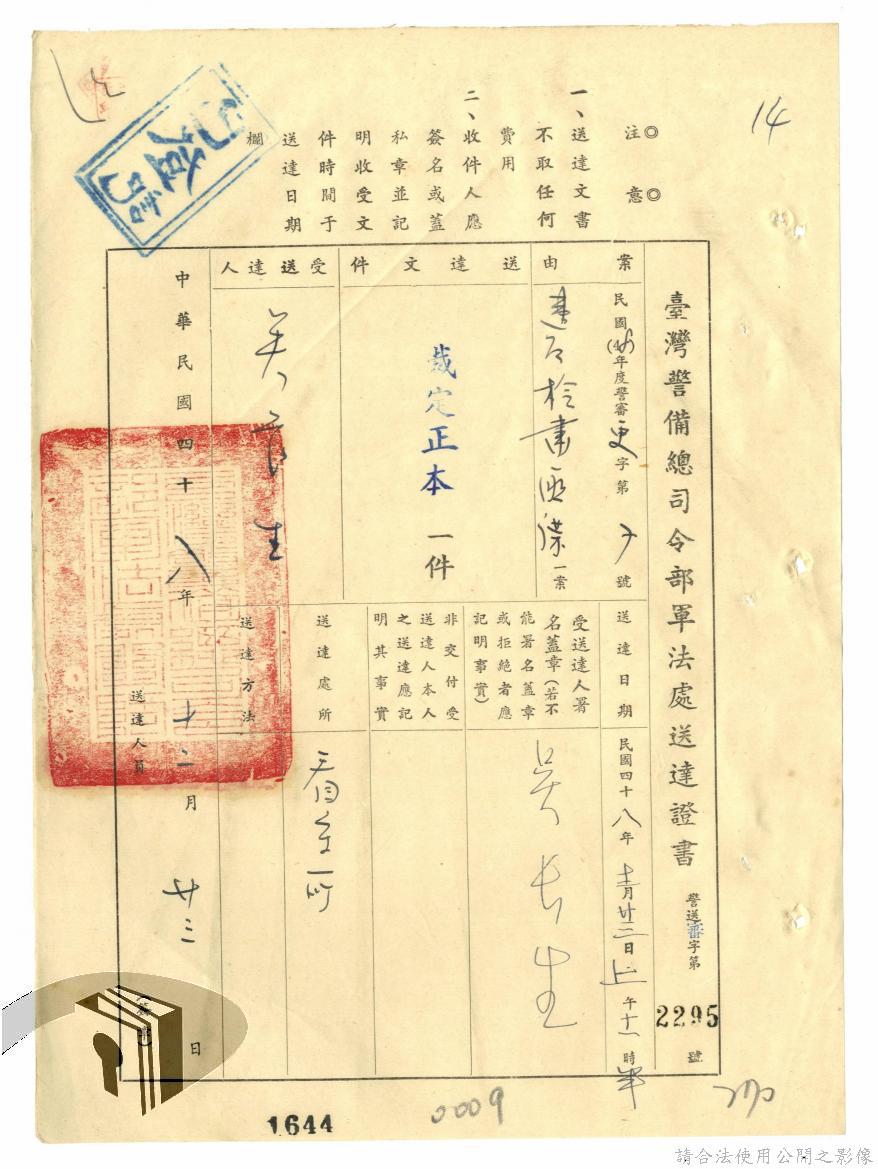 14
◎注意◎
一、送達文書
不取任何
費用
二、收件人應
簽名或蓋
私章並記
明收受文
件時間于
送達日期
欄
臺灣警備總司令部軍法處送達證書
警送審字第
2295
號
案由
民國(48)年度警審更字第 號
一案
送達文件
裁定正本 一件
受送達人
吳長生
送達日期
民國四十八年十二月廿三日上午十一時半
受送達人署
名蓋章(若不
能署名蓋章
或拒絕者應
記明事實)
吳長生
非交付受
送達人本人
之送達應記
明其事實
送達處所
看守所
送達方法
中華民國四十八年十二月廿三日
送達人員
(簽章)
1644
0009
請合法使用公開之影像